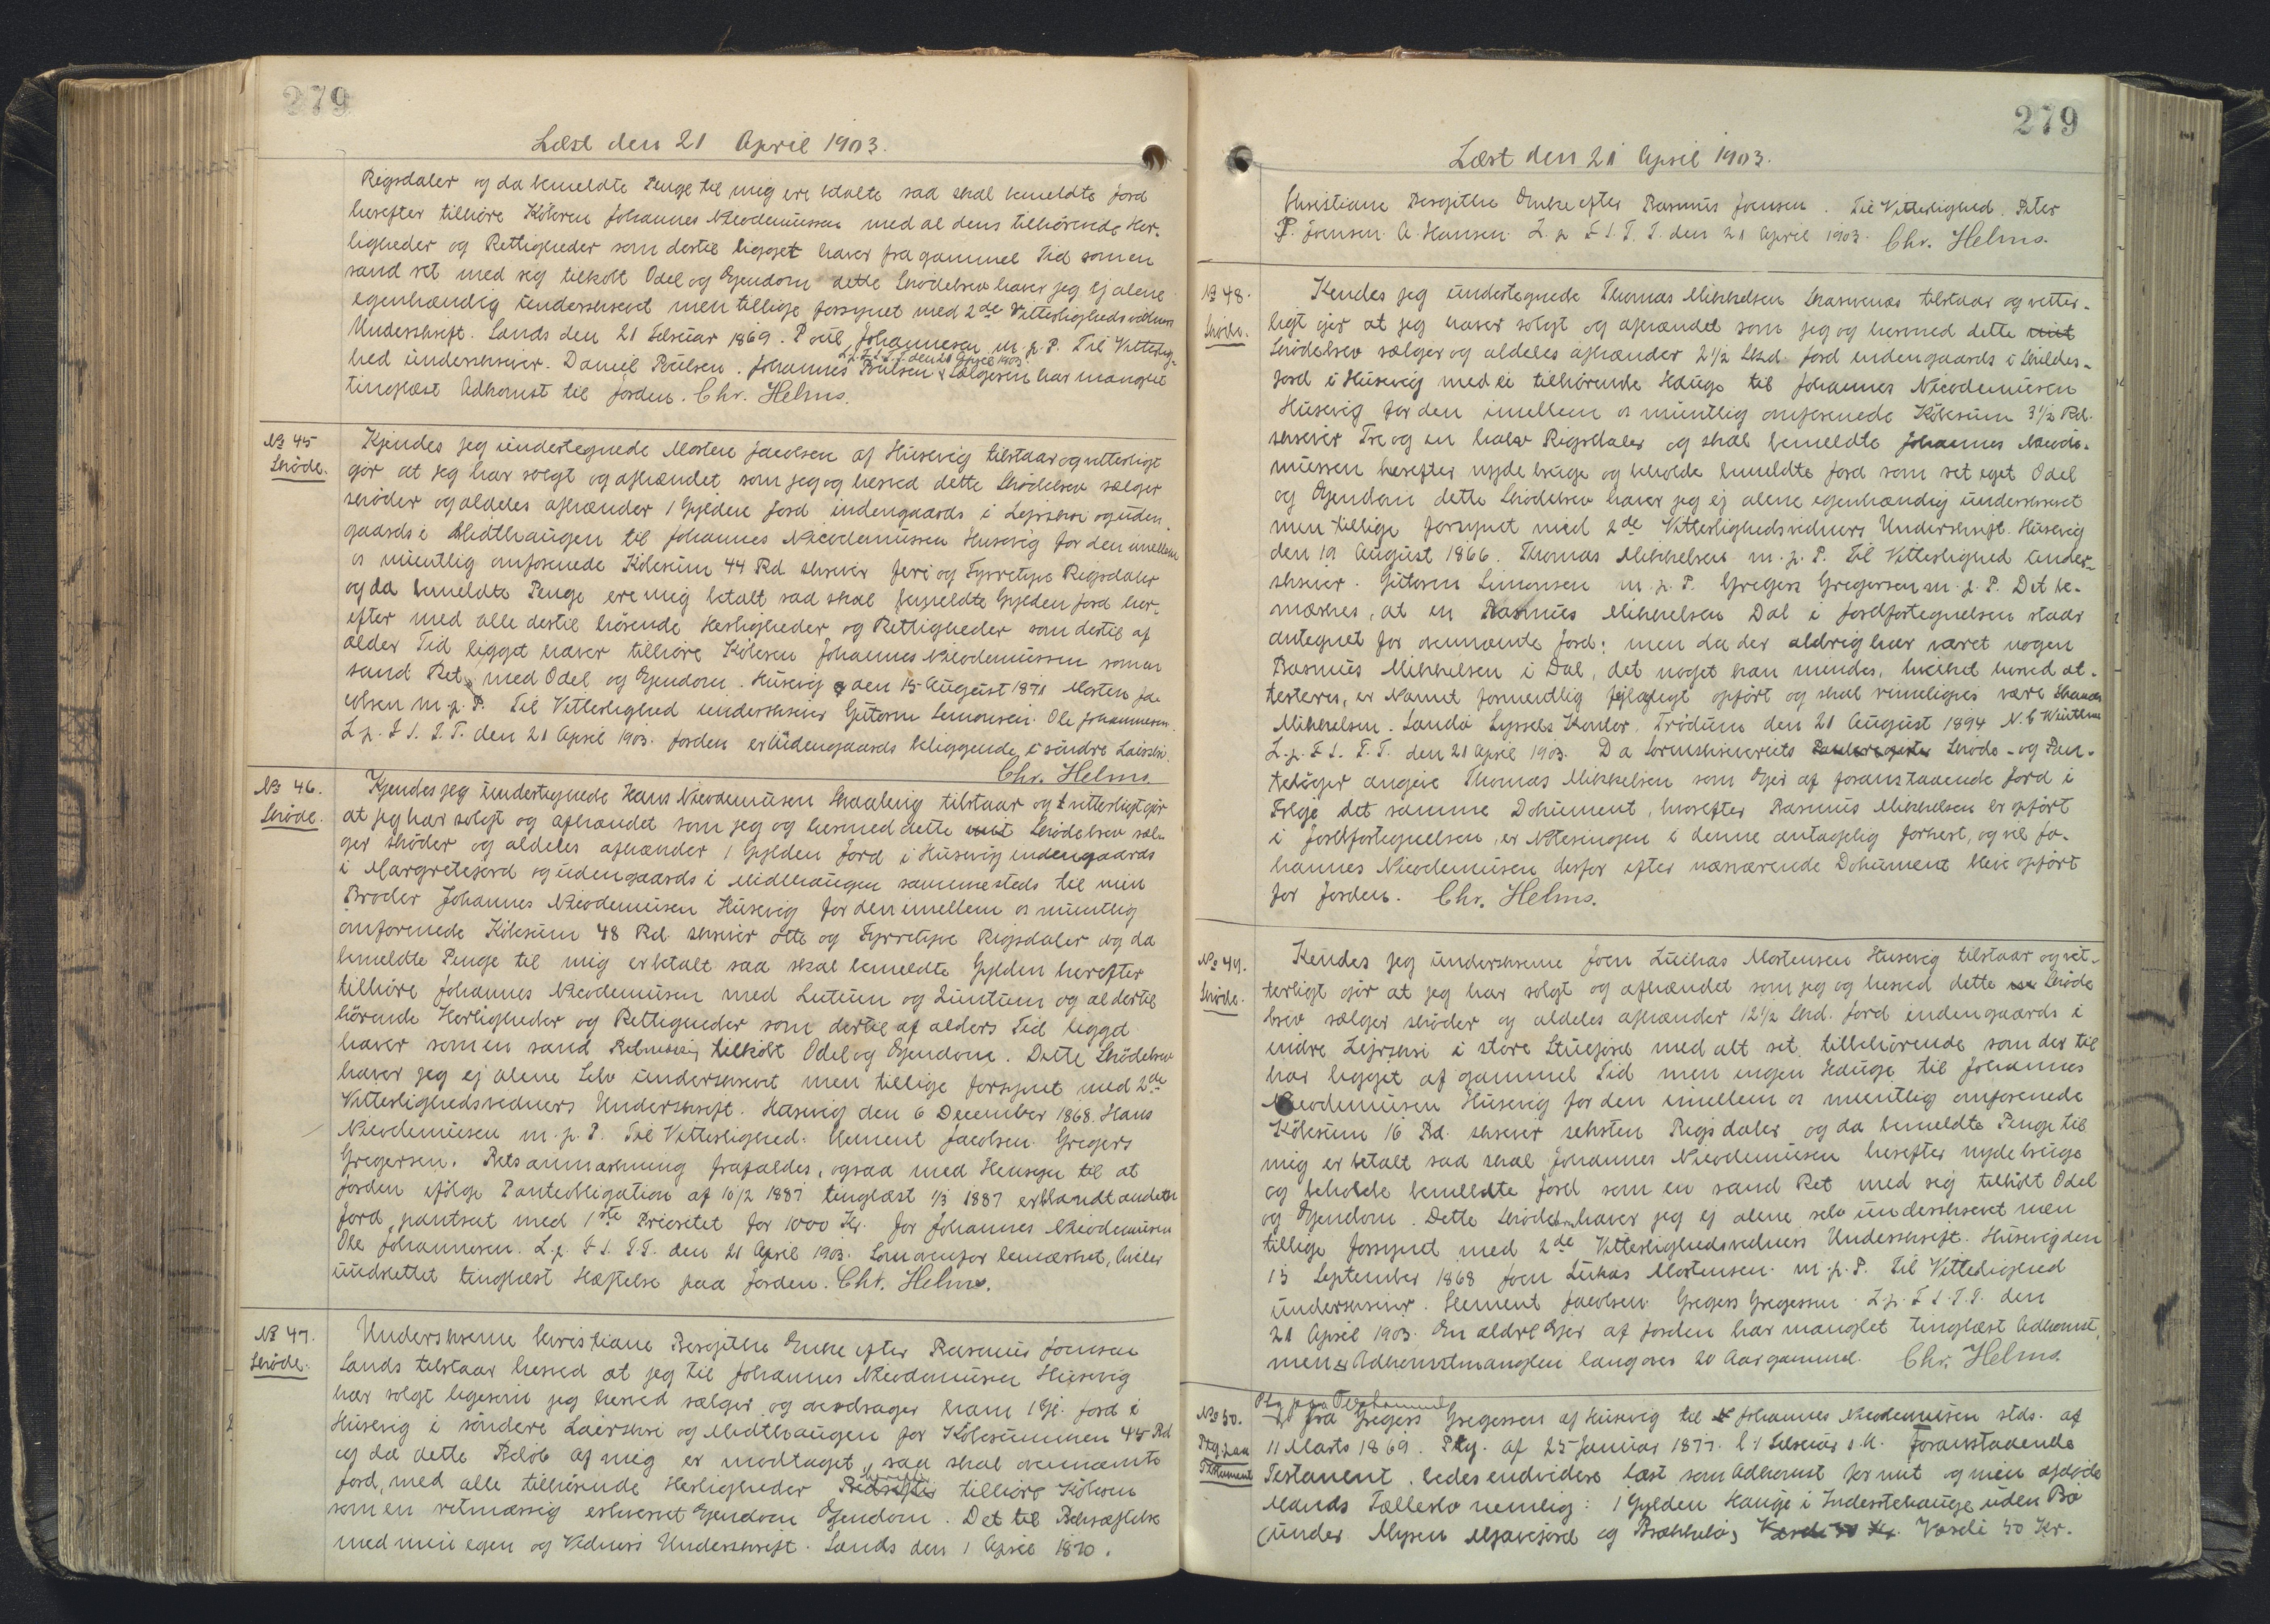 279
Læst den 21 April 1903.
Rigsdaler og da bemeldte Penge til mig ere betalte saa skal bemeldte Jord
herefter tilhöre Köberen Johannes Nicodemussen med al dens tilhörende Her-
ligheder og Rettigheder som dertil ligget haver fra gammel Tid som en
sand ret med seg tilkobt Odel og Ejendom dette Sködebrev haver jeg ej alene
egenhændig underskrevet men tillige forsynet med 2de Vitterligheds vidners
Underskrift. Sands den 21 Februar 1869. Poul Johannesen m. p. P. Til Vitterlig-
L. p. F. S. T. T. den 21 April 1903
hed underskriver. Daniel Poulsen. Johannes Poulsen Sælgeren har manglet
tinglæst Adkomst til Jorden. Chr. Helms.
No 45
Sköde.
Kjendes jeg undertegnede Morten Jacobsen af Husevig tilstaar og vitterligt
gör at jeg har solgt og afhændet som jeg og herved dette Sködebrev sælger
sköder og aldeles afhænder 1 Gylden Jord indengaards i Lejrskov og uden-
gaards i Midthaugen til Johannes Nicodemussen Husevig for den imellem
os mundtlig omforenede Köbesum 44 Rd skriver fire og Fyrretyve Rigsdaler
og da bemeldte Penge ere mig betalt saa skal bemeldte Gylden Jord her-
efter med alle dertil hörende Herligheder og Rettigheder som dertil af
alder Tid ligget haver tilhöre Köberen Johannes Nicodemussen som en
sand Ret med Odel og Ejendom. Husevig den 15 August 1871 Morten Ja-
cobsen m. p. P. Til Vitterlighed underskriver Guttorm Simonsen. Ole Johannesen.
L. p. F. S. T. T. den 21 April 1903. Jorden er Udengaards beliggende i söndre
Chr. Helms
No 46.
Sköde.
Kjendes jeg undertegnede Hans Nicodemusen Skaalevig tilstaar og vitterligt gör
at jeg har solgt og afhændet som jeg og hermed dette mit Sködebrev sæl-
ger sköder og aldeles afhænder 1 Gylden Jord i Husevig indengaards
i Margretejord og udengaards i Midthaugen sammesteds til min
Broder Johannes Nicodemusen Husevig for den imellem os mundtlig
omforenede Köbesum 48 Rd skriver otte og Fyrretyve Rigsdaler og da
bemeldte Penge til mig er betalt saa skal bemeldte Gylden herefter
tilhöre Johannes Nicodemusen med Lutum og Luntum og al dertil
hörende Herligheder og Rettigheder som dertil af alders Tid ligget
haver som en sand Retmæssig tilköbt Odel og Ejendom. Dette Sködebrev
haver jeg ej alene Selv underskrevet men tillige forsynet med 2de
Vitterlighedsvidners Underskrift. Husevig den 6 December 1868. Hans
Nicodemusen m. p. P. Til Vitterlighed. Klement Jacobsen Gregers
Gregersen. Retsanmærkning frafaldes, ogsaa med Hensyn til at
Jorden ifölge Panteobligation af 10/2 1887 tinglæst 1/3 1887 er blandt anden
Jord pantsat med 1ste Prioritet for 1000 Kr. for Johannes Nicodemusen
Ole Johannesen. L. p. F. S. T. T. den 21 April 1903. Som ovenfor bemærket, hviler
uudslettet tinglæst Hæftelse paa Jorden. Chr. Helms.
No 47.
Sköde.
Underskrevne Kristiane Bergithe Enke efter Rasmus Joensen
Sands tilstaar herved at jeg til Johannes Nicodemusen Husevig
har solgt ligesom jeg herved sælger og overdrager ham 1 Gl. Jord i
Husevig i söndere Lairskov og Midthaugen for Köbesummen 45 Rd
og da dette Belöb af mig er modtaget, saa skal ovennævnte
Jord, med alle tilhörende Herligheder herefter tilhöre Köberen
som en retmæssig erhvervet Ejendom Ejendom. Det til Bekræftelse
med min egen og Vidners Underskrift. Sands den 1 April 1870.
279
Læst den 21 April 1903.
Christiane Bergithe Enke efter Rasmus Joensen. Til Vitterlighed. Peter
P. Joensen. A. Hansen. L. p. F. S. T. T. den 21 April 1903. Chr. Helms.
No 48.
Sköde.
Kendes jeg undertegnede Thomas Mikkelsen Skarvenæs tilstaar og vitter-
ligt gjör at jeg haver solgt og afhændet som jeg og hermed dette mit
Sködebrev sælger og aldeles afhænder 2 1/2 Skd Jord indengaards i Kildes-
jord i Husevig med ei tilhörende Hauge til Johannes Nicodemusen
Husevig for den imellem os mundtlig omforenede Köbesum 3 1/2 Rd.
skriver Tre og en halv Rigsdaler og skal bemeldte Johannes Nicode-
mussen herefter nyde bruge og beholde bemeldte Jord som ret eget Odel
og Ejendom dette Sködebrev haver jeg ej alene egenhændig underskrevet
men tillige forsynet med 2de Vitterlighedsvidners Underskrift. Husevig
den 19 August 1866. Thomas Mikkelsen m. p. P. Til Vitterlighed under-
skriver. Gutorm Simonsen m. p. P. Gregers Gregersen m. p. P. Det be-
mærkes, at en Rasmus Mikkelsen Dal i Jordfortegnelsen staar
antegnet for ovennævnte Jord; men da der aldrig har været nogen
Rasmus Mikkelsen i Dal, det noget kan mindes, hvilket herved at-
testeres, er Navnet formentlig fejlagtigt opfört og skal rimeligvis være Thomas
Mikkelsen. Sandö Syssels Kontor Trödum den 21 August 1894 N. C Winther
L. p. F. S. T. T. den 21 April 1903. Da Sorenskriveriets Sköde- og Pan-
teböger angive Thomas Mikkelsen som Ejer af foranstaaende Jord i
Fölge det samme Dokument, hvorefter Rasmus Mikkelsen er opfört
i Jordfortegnelsen, er Noteringen i denne antagelig forkert, og vil Jo-
hannes Nicodemusen derfor efter nærværende Dokument blive opfört
for Jorden. Chr. Helms.
No 49.
Sköde.
Kendes jeg underskrevne Joen Lucas Mortensen Husevig tilstaar og vit-
terligt gör at jeg har solgt og afhændet som jeg og herved dette Sköde
brev sælger sköder og aldeles afhænder 12 1/2 Skd. Jord indengaards i
indre Lejrskov i store Stuejord med alt ret tilbehörende som der til
har ligget af gammel Tid men ingen Hauge til Johannes
Nicodemusen Husevig for den imellem os mundtlig omforenede
Köbesum 16 Rd. skriver seksten Rigsdaler og da bemeldte Penge til
mig er betalt saa skal Johannes Nicodemusen herefter nyde bruge
og beholde bemeldte Jord som en sand Ret med sig tilköbt Odel
og Ejendom. Dette Sködebrev haver jeg ej alene selv underskrevet men
tillige forsynet med 2de Vitterlighedsvidners Underskrift. Husevig den
13 September 1868 Joen Lukas Mortensen. m. p. P. Til Vitterlighed
underskriver. Klement Jacobsen Gregers Gregersen. L. p. F. S. T. T. den
21 April 1903. En ældre Ejer af Jorden har manglet tinglæst Adkomst,
men er Adkomstmanglen langover 20 Aar gammel. Chr. Helms
No 50.
Ptg. paa
Testament
Ptg paa Testament
fra Gregers Gregersen af Husevig til Johannes Nicodemusen stds. af
11 Marts 1869. Ptg. af 25 Januar 1877. l 1 Februar s. A. Foranstaaende
Testament bedes endvidere læst som Adkomst for mit og min afdöde
Mands Fællesbo nemlig: 1 Gylden Hauge i Inderstehauge uden Bö
(under Mysen Mjavejord og Brækkelö) Værdi 50 Kr.